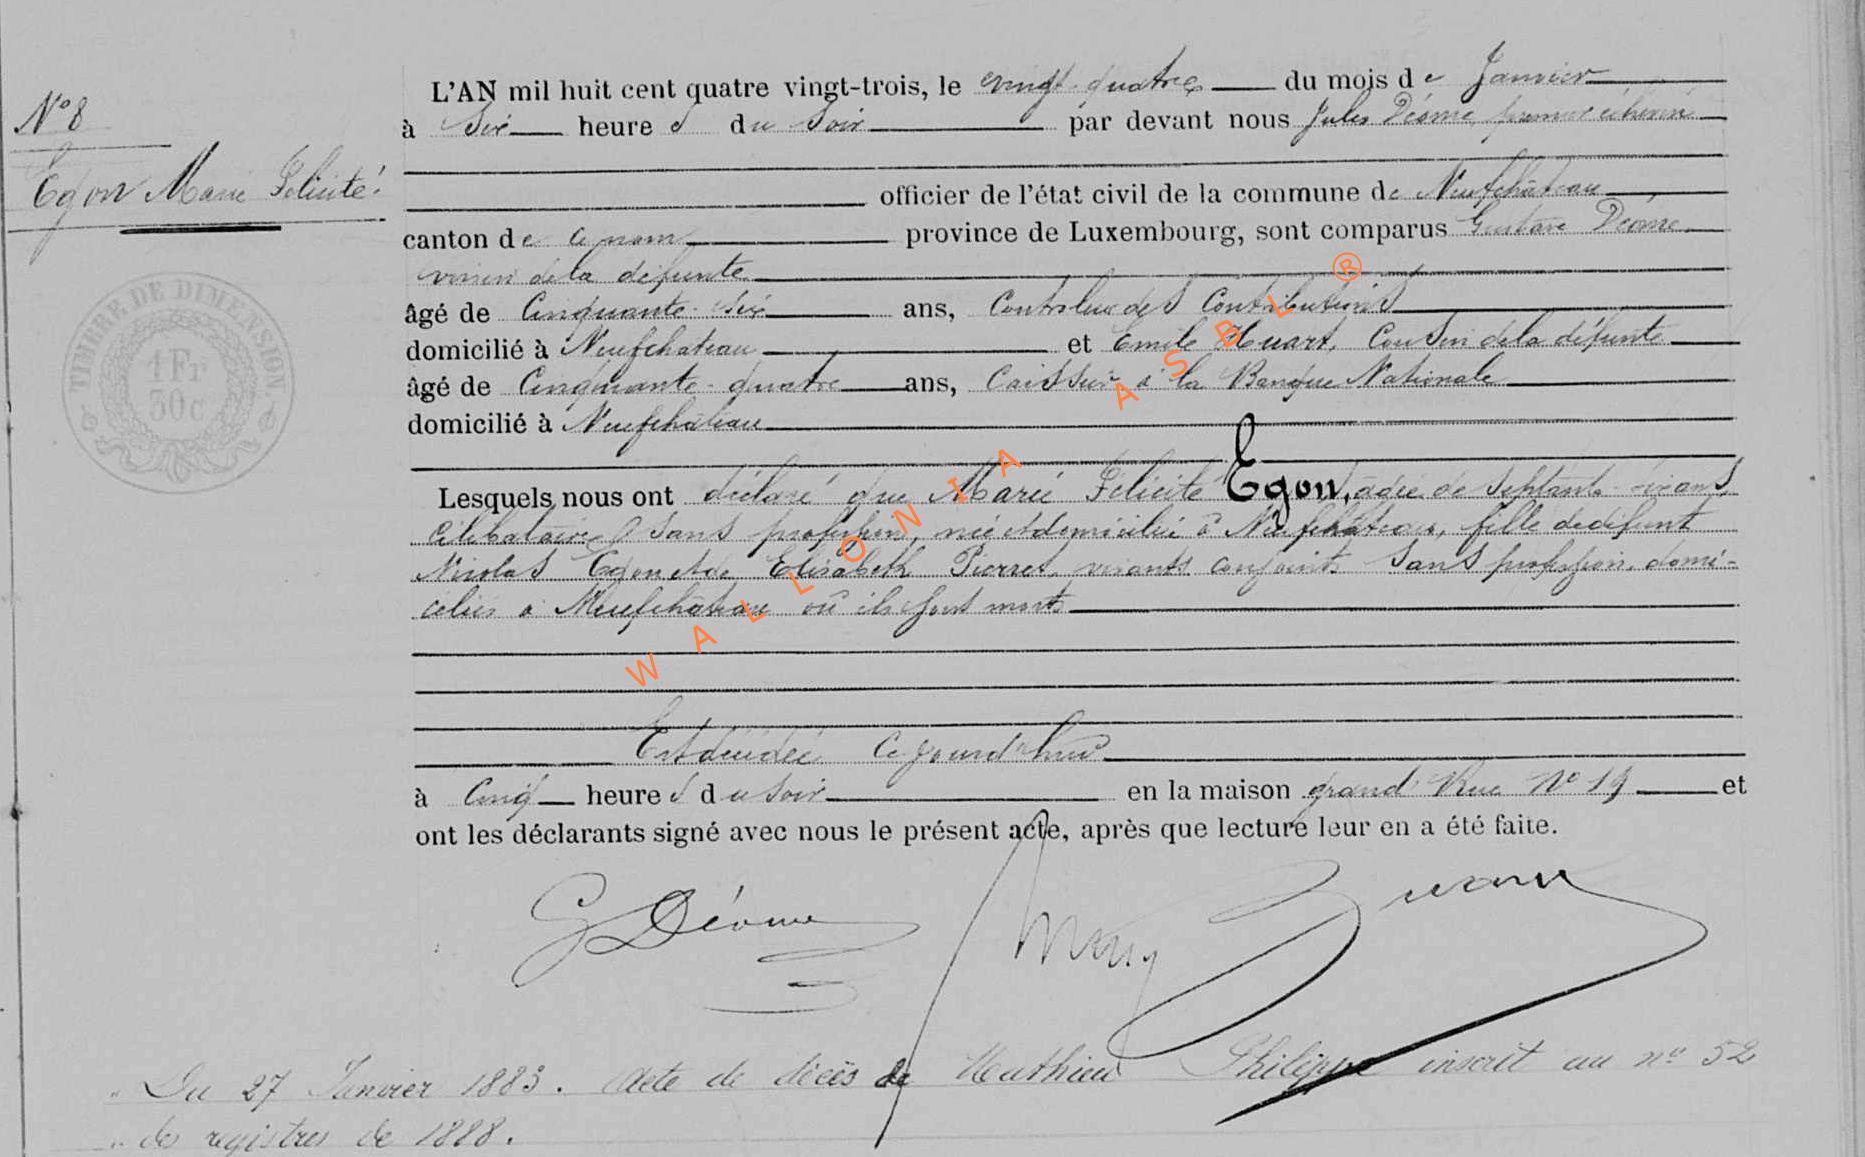 L'AN mil huit cent quatre vingt-trois, le vingt quatre du mois de Janvier
N° 8
à Six heures du Soir par devant nous Jules Déome, premier échevin
Egon Marie Félicité
officier de l'état civil de la commune de Neufchâteau
canton de ce nom province de Luxembourg, sont comparus Gustave Déome
voisin de la défunte
TIMBRE DE DIMENSION
1 Fr
50 c
âgé de Cinquante-six ans, Controleur des Contributions
domicilié à Neufchateau et Emile Huart, Cousin de la défunte
âgé de Cinquante-quatre ans, Caissier à la Banque Nationale
domicilié à Neufchâteau
Lesquels nous ont déclaré que Marie Félicité Egon, agée de septante ans,
célibataire, sans profession, née et domiciliée à Neufchâteau, fille de défunt
Nicolas Egon et de Elisabeth Pierret, vivants conjoints sans profession, domi-
ciliés à Neufchâteau où ils sont morts
Est décédée Ce jourd'hui
à Cinq heures du soir en la maison grand Rue N° 19 et
ont les déclarants signé avec nous le présent acte, après que lecture leur en a été faite.
G Déome
WALLONIA ASBL ®
Du 27 Janvier 1883. Acte de décès de Mathieu Philippe inscrit au n° 52
des registres de 1888.